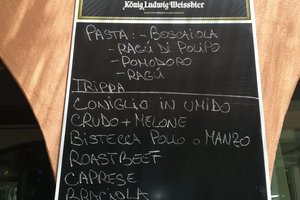 König Ludwig Weissbier
PASTA: - BOSCAIOLA
- RAGÚ DI POLIPO
- POMODORO
- RAGÚ
TRIPPA
CONIGLIO IN UMIDO
CRUDO + MELONE
BISTECCA POLLO O MANZO
ROASTBEEF
CAPRESE
BRACIOLA